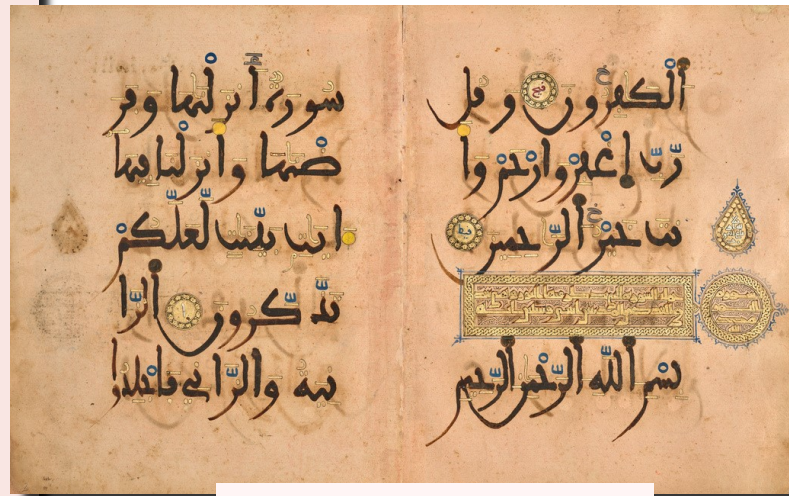 ٱلكفرون وقل
رّبّ ٱغفر وارحم وا
نت خير ٱلرّحمين
بسم ٱللّه ٱلرّحمن ٱلرّحيم
سورة ٱنزلنها وفر
ضنها وانزلنا فيها
ايت بيّنت لّعلّكم
تذّكّرون ٱلزّا
نية والزّاني فاجلدوا